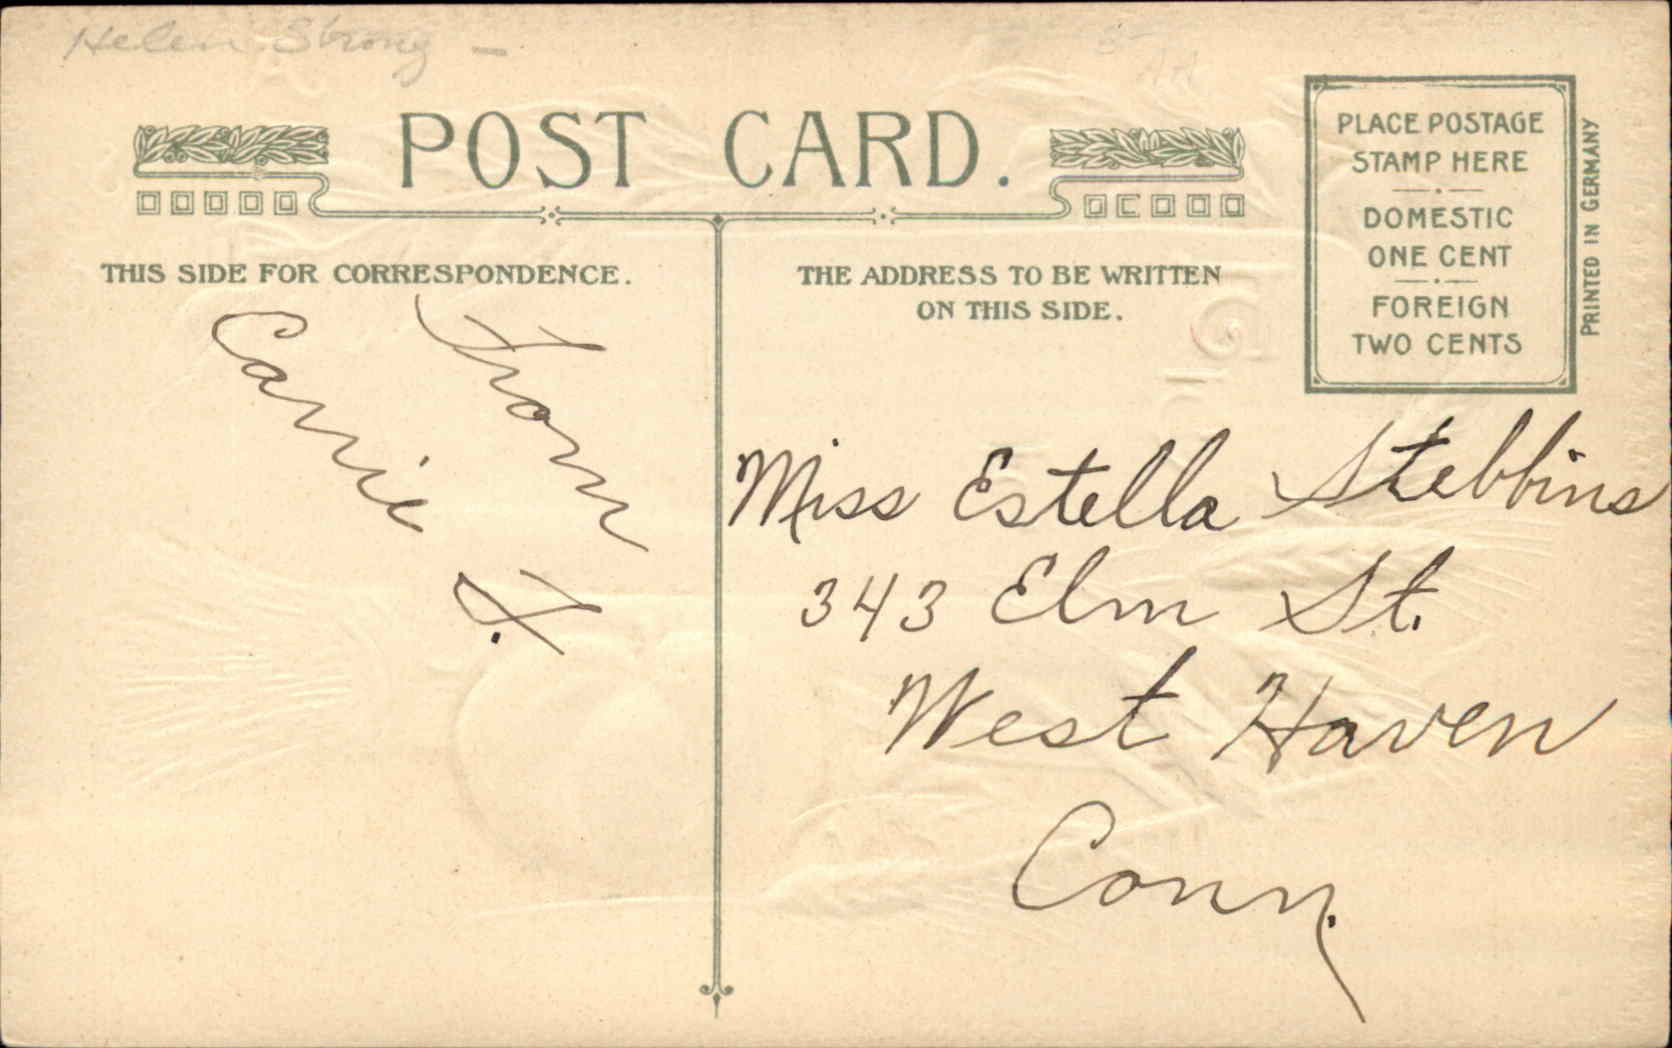 Helen Strong -
POST CARD.
THIS SIDE FOR CORRESPONDENCE.
THE ADDRESS TO BE WRITTEN
ON THIS SIDE.
PLACE POSTAGE
STAMP HERE
DOMESTIC
ONE CENT
FOREIGN
TWO CENTS
PRINTED IN GERMANY
From
Carrie F.
Miss Estella Stebbins
343 Elm St.
West Haven
Conn.